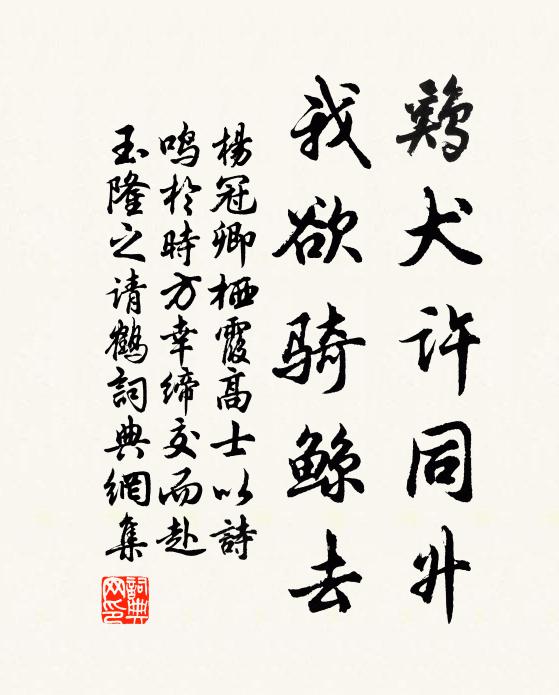 鷄犬许同升
我欲骑鲸去
楊冠卿栖霞高士以詩
鸣於時方幸締交而赴
玉隆之请鹤詞典網集
詞典网印